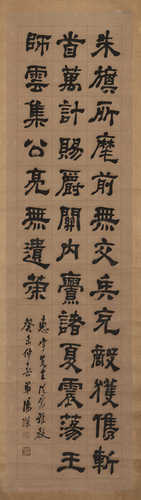 朱旗所麾前無交兵克敵獲儁斬
首萬計賜爵關內諸夏震蕩王
師雲集公亮無遺榮
惠宇先生法家雅教
癸未仲春